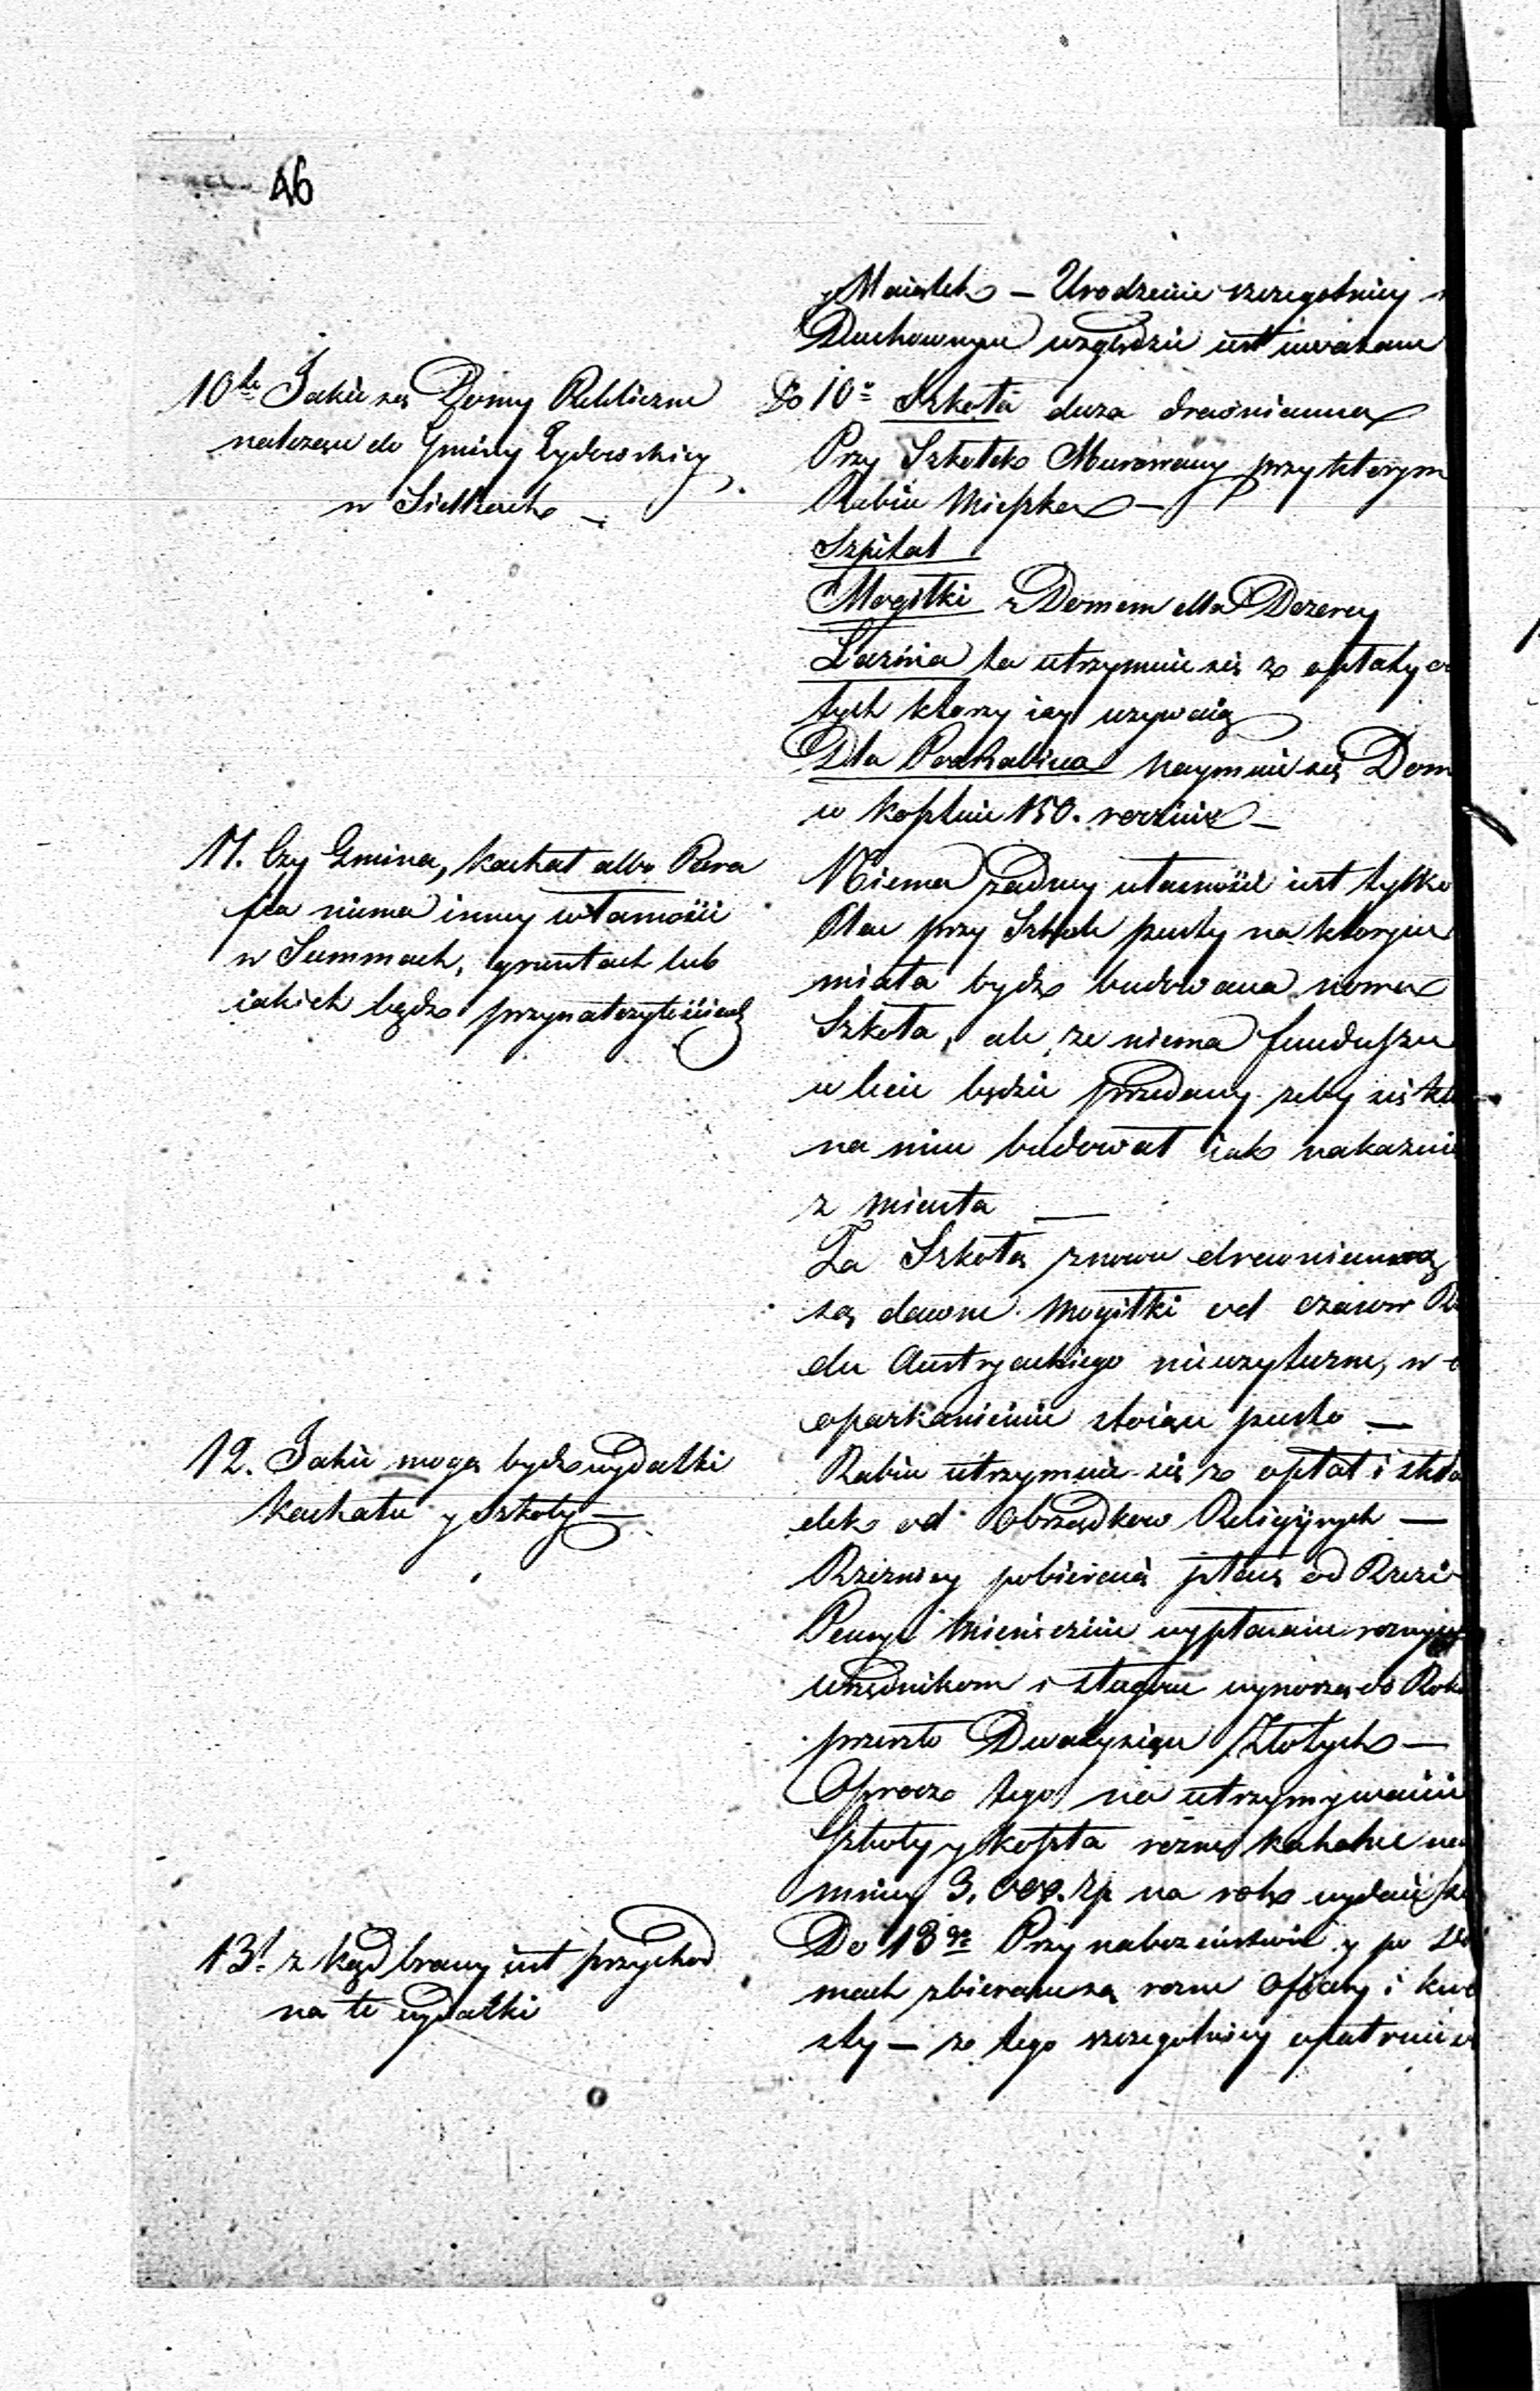 46
y Maiątek – Urodzenie szczegolniey
Duchownym względzie iest uwazane
10te Jakie są Domy Publiczne
należące do Gminy Żydowskiey
w Siedlcach –
Do 10o Szkoła duza drewnianna
Przy Szkołek Murowany przy ktorym
Rabin Mieszka –
Szpital
Mogiłki z Domem dla Dozorcy
Łaznia ta utrzymuie się z opłaty od
tych ktorzy iey uzywaią
Dla PodRabina naymuie się Dom
w kosztuie 150. rocznie –
11. Czy Gmina, kachał albo Para
fia niema inney własnosci
w Summach, gruntach lub
iakich bądz przynależytościach
Niema żadney własności iest tylko
Plac przy Szkole pusty na ktorym
miała bydz budowana nowa
Szkoła, ale, że niema funduszu
w lecie będzie przedany zeby się
na nim budował iak nakazuie
z miasta –
Za Szkołą znowu drewnianną
są dawne Mogiłki od czasow
du Austryackiego nieuzyteczne, w
oparkanieniu stoiące pusto –
12. Jakie mogą bydz wydatki
kachału y szkoły –
Rabin utrzymuie się z opłat i skła
dek od Obrządkow Religiynych –
Rzeznicy pobieraią płacę od Rzezi
Pensye Miesięcznie wypłacane roznym
urzędnikom i sługom wynoszą do Roku
przeszło Dwatysiące Złotych –
Oprocz tego na utrzymywanie
Szkoły y koszta rozne kahalne
mniey 3,000. zp na rok wydaie
13t z kąd brany iest przychod
na te wydatki
Do 13go Przy nabozenstwie y po
mach zbierane są rozne Ofiary i kwe
sty – z tego szczegolniey opatruie